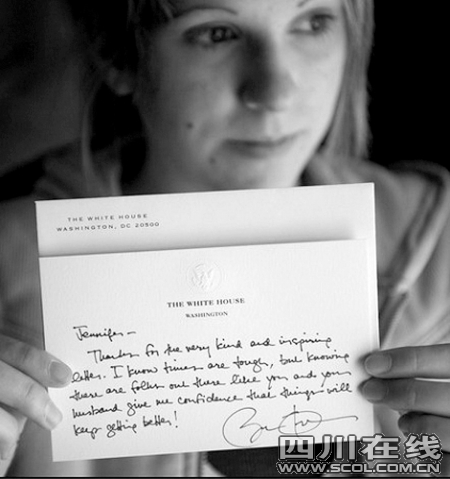 THE WHITE HOUSE
WASHINGTON, DC 20500
THE WHITE HOUSE
WASHINGTON
Jennifer—
Thanks for the very kind and inspiring
letter. I know times are tough, but knowing
there are folks out there like you and your
husband give me confidence that things will
keep getting better!
四川在线
WWW.SCOL.COM.CN